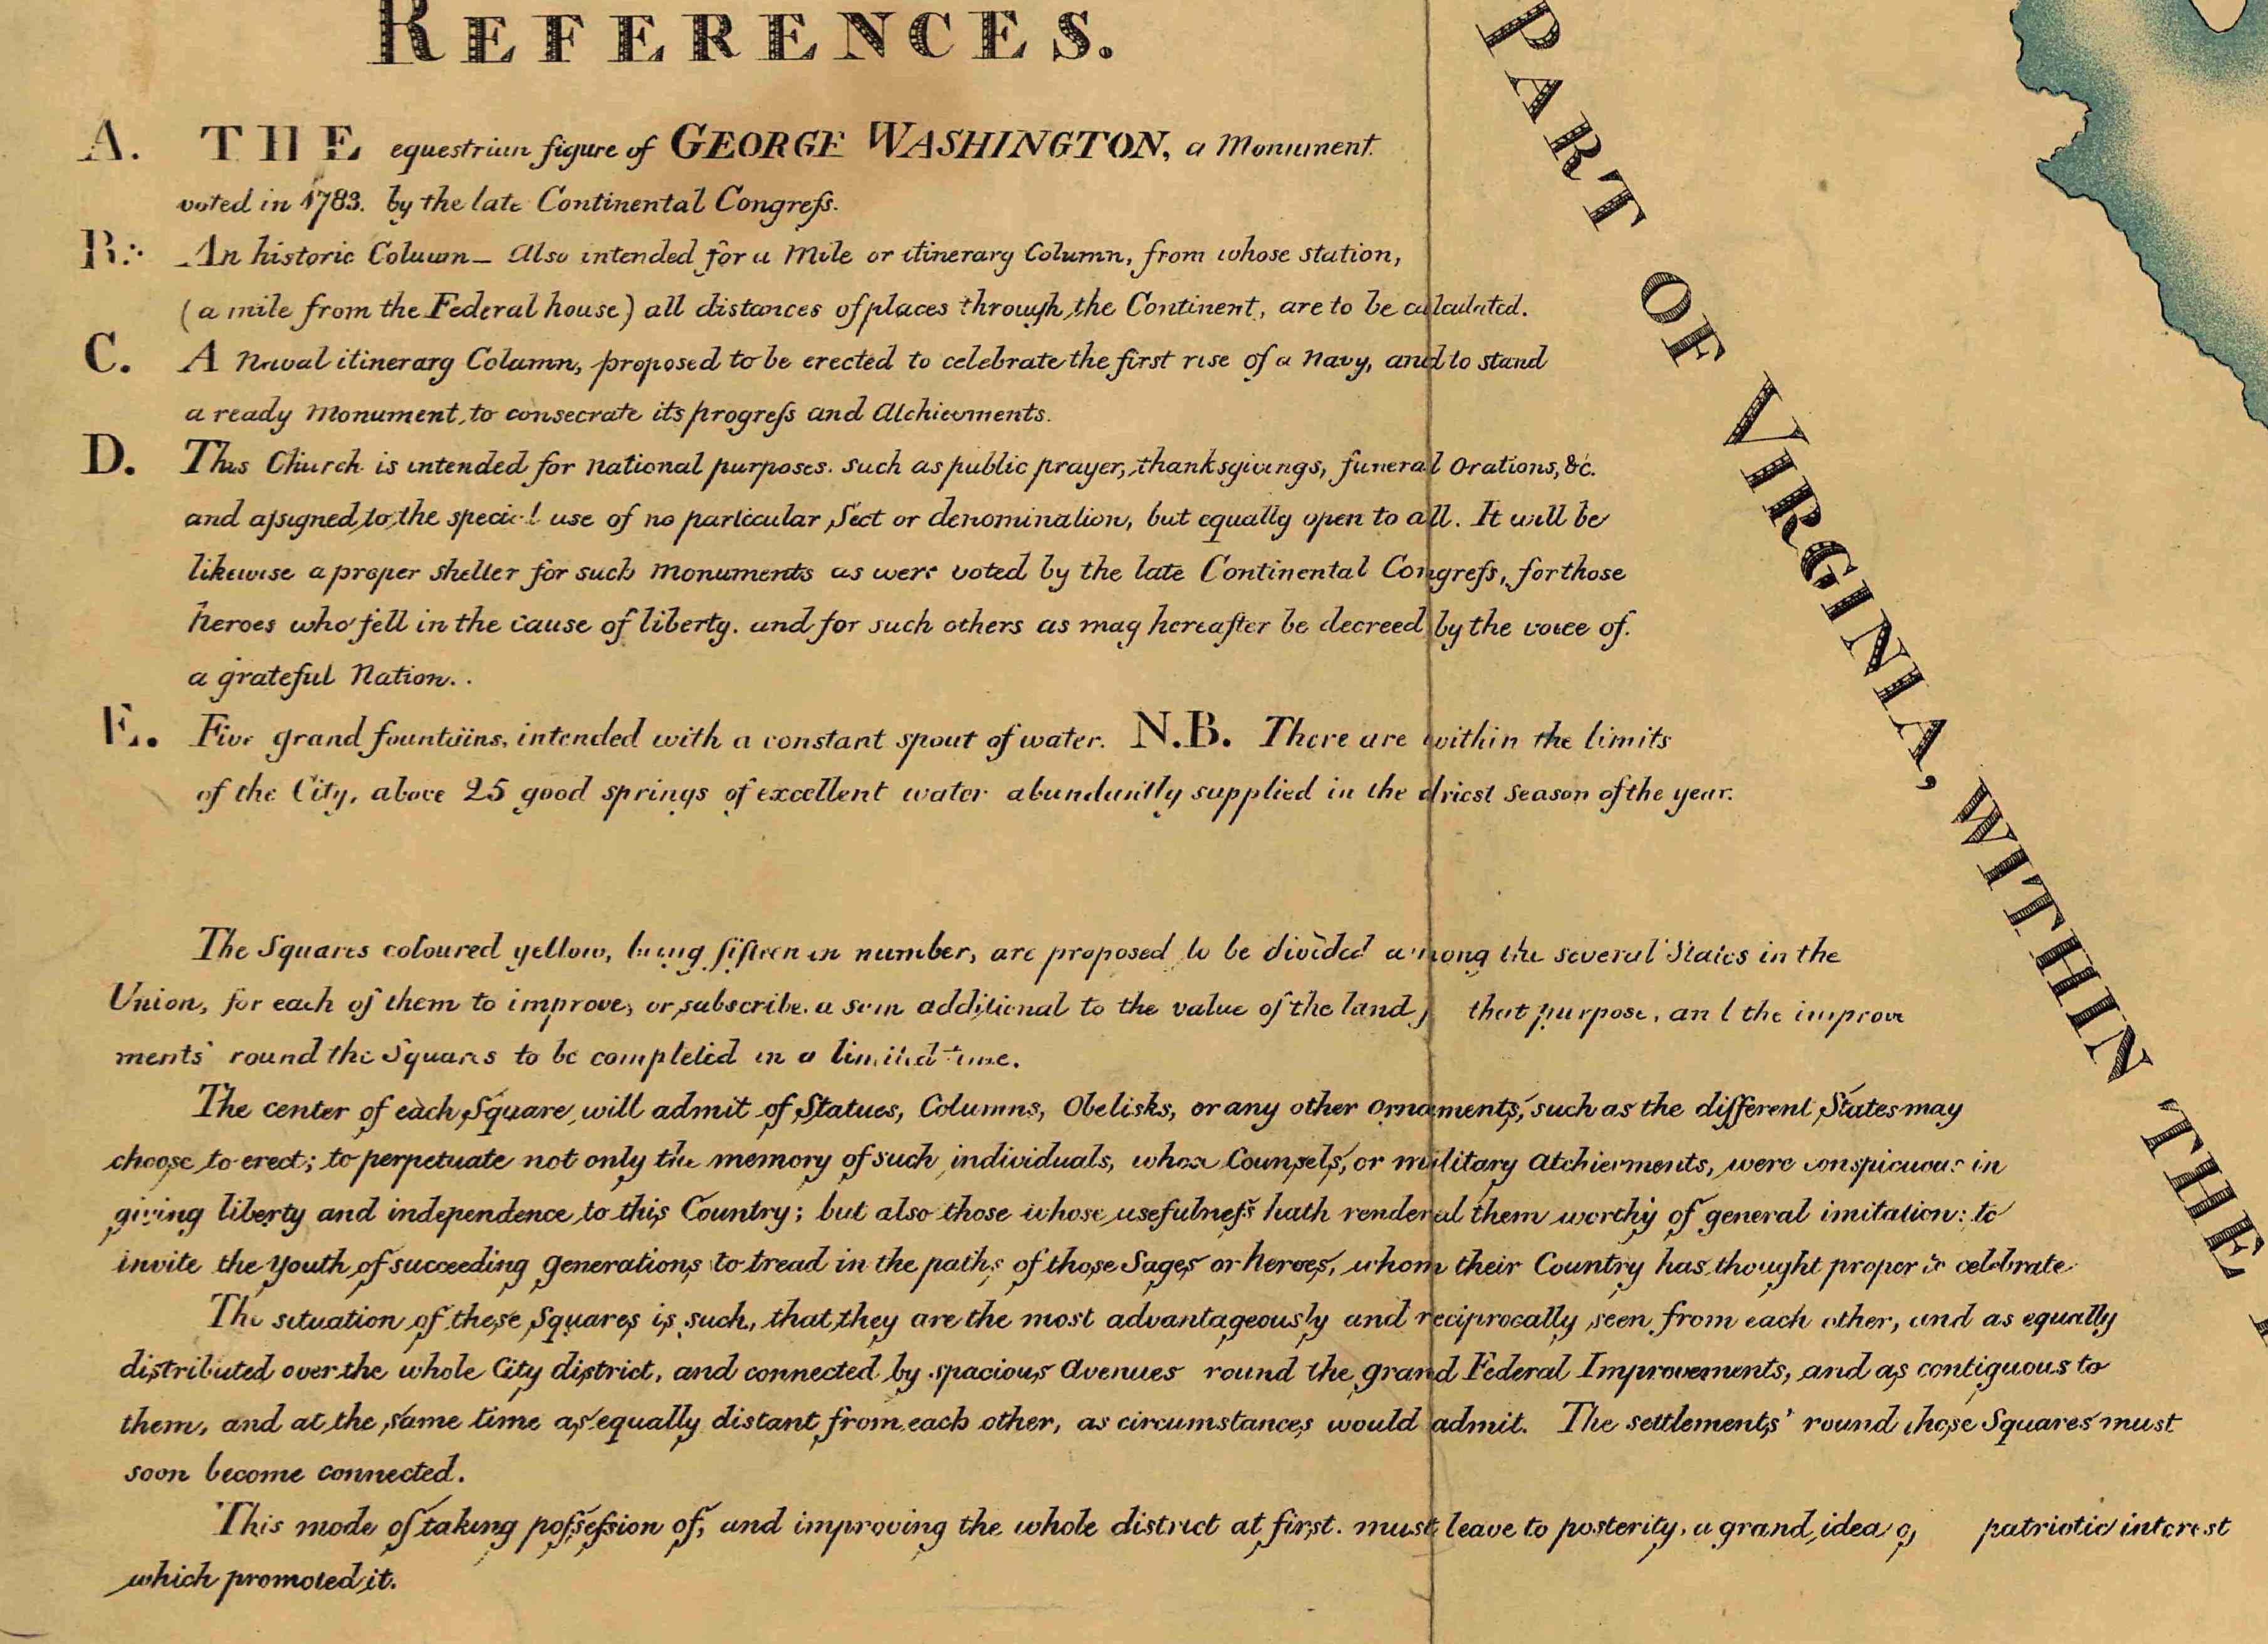 REFERENCES.
A. THE equestrian figure of GEORGE WASHINGTON, a Monument
voted in 1783. by the late Continental Congreſs.
B. An historic Column_ Also intended for a Mile or itinerary Column, from whose station,
(a mile from the Federal house) all distances of places through the Continent, are to be calculated.
C. A Naval itinerary Column, proposed to be erected to celebrate the first rise of a Navy, and to stand
a ready Monument, to consecrate its progreſs and Atchievments.
D. This Church is intended for national purposes. such as public prayer, thanksgivings, funeral Orations, &c.
and aſsigned to the special use of no particular Sect or denomination, but equally open to all. It will be
likewise a proper shelter for such Monuments as were voted by the late Continental Congreſs, for those
heroes who fell in the cause of liberty. and for such others as may hereafter be decreed by the voice of.
a grateful Nation..
E. Five grand fountains, intended with a constant spout of water. N.B. There are within the limits
of the City, above 25 good springs of excellent water abundantly supplied in the driest Season of the year.
The Squares coloured yellow, being fifteen in number, are proposed to be divided among the several States in the
Union, for each of them to improve, or subscribe. a sum additional to the value of the land that purpose, and the improve
ments round the Squares to be completed in a limited time.
The center of each Square, will admit of Statues, Columns, Obelisks, or any other Ornaments, such as the different States may
choose to erect; to perpetuate not only the memory of such individuals, whose Counsels, or military Atchievments, were conspicuous in
giving liberty and independence to this Country; but also those whose usefulneſs hath rendered them worthy of general imitation: to
invite the Youth of succeeding generations to tread in the paths of those Sages or heroes, whom their Country has thought proper to celebrate
The situation of these Squares is such, that they are the most advantageously and reciprocally seen from each other, and as equally
distributed over the whole City district, and connected by spacious Avenues round the grand Federal Improvements, and as contiguous to
them, and at the same time as equally distant from each other, as circumstances would admit. The settlements' round those Squares must
soon become connected.
This mode of taking poſseſsion of, and improving the whole district at first. must leave to posterity, a grand idea patriotic interest
which promoted it.
PART OF VIRGINIA, WITHIN THE